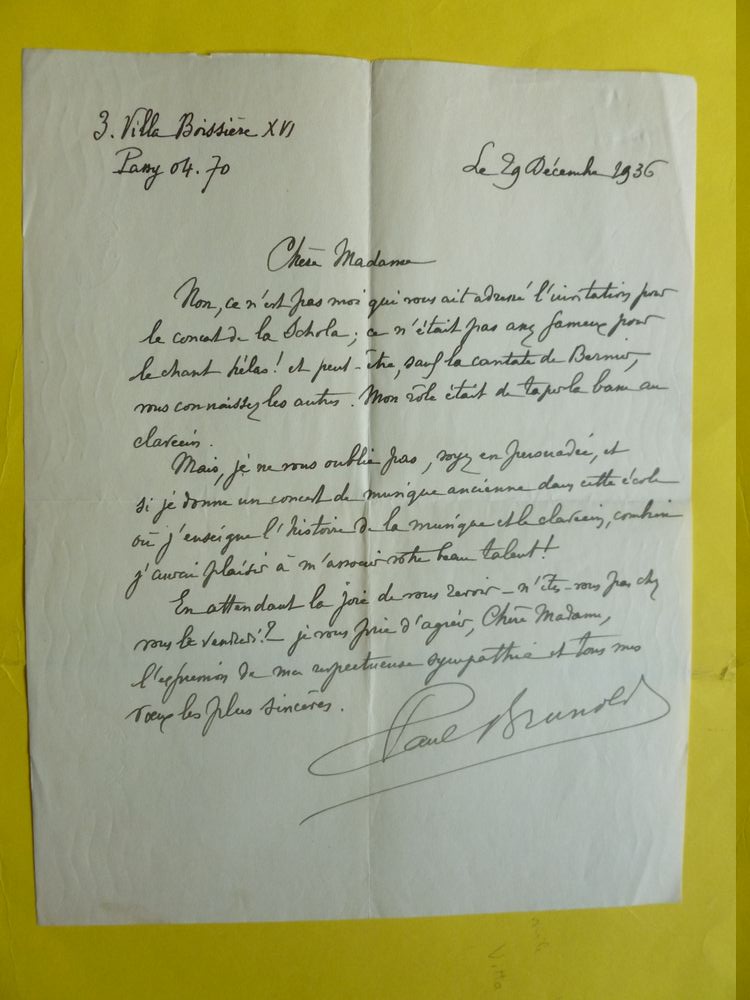 3. Villa Boissière XVI
Passy 04.70
Le 29 Décembre 1936
Chère Madame
Non, ce n'est pas moi qui vous ait adressé l'invitation pour
le concert de la Schola ; ce n'était pas assez fameux pour
le chant hélas ! et peut-être, sauf la cantate de Bernier,
vous connaissez les autres. Mon rôle était de taper la basse au
clavecin.
Mais, je ne vous oublie pas, soyez en persuadée, et
si je donne un concert de musique ancienne dans cette école
où j'enseigne l'histoire de la musique et le clavecin, combien
j'aurai plaisir à m'associer votre beau talent !
En attendant la joie de vous revoir - n'êtes-vous pas chez
vous le vendredi ? je vous prie d'agréer, Chère Madame,
l'expression de ma respectueuse sympathie et tous mes
vœux les plus sincères.
Paul Brunold